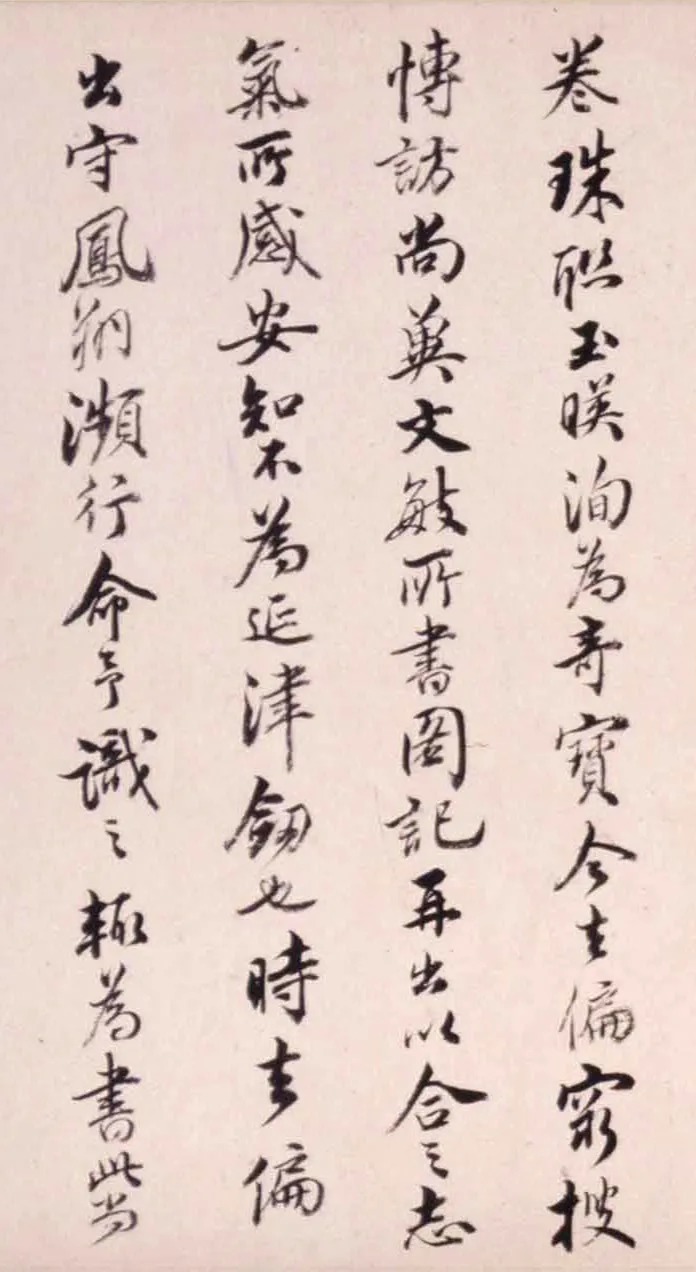 卷珠聯玉暎洵為奇寶今吉偏窮搜
博訪尚冀文敏所書圖記再出以合之志
氣所感安知不為延津劒也時吉偏
出守鳳翔瀕行命予識之輙為書此尚